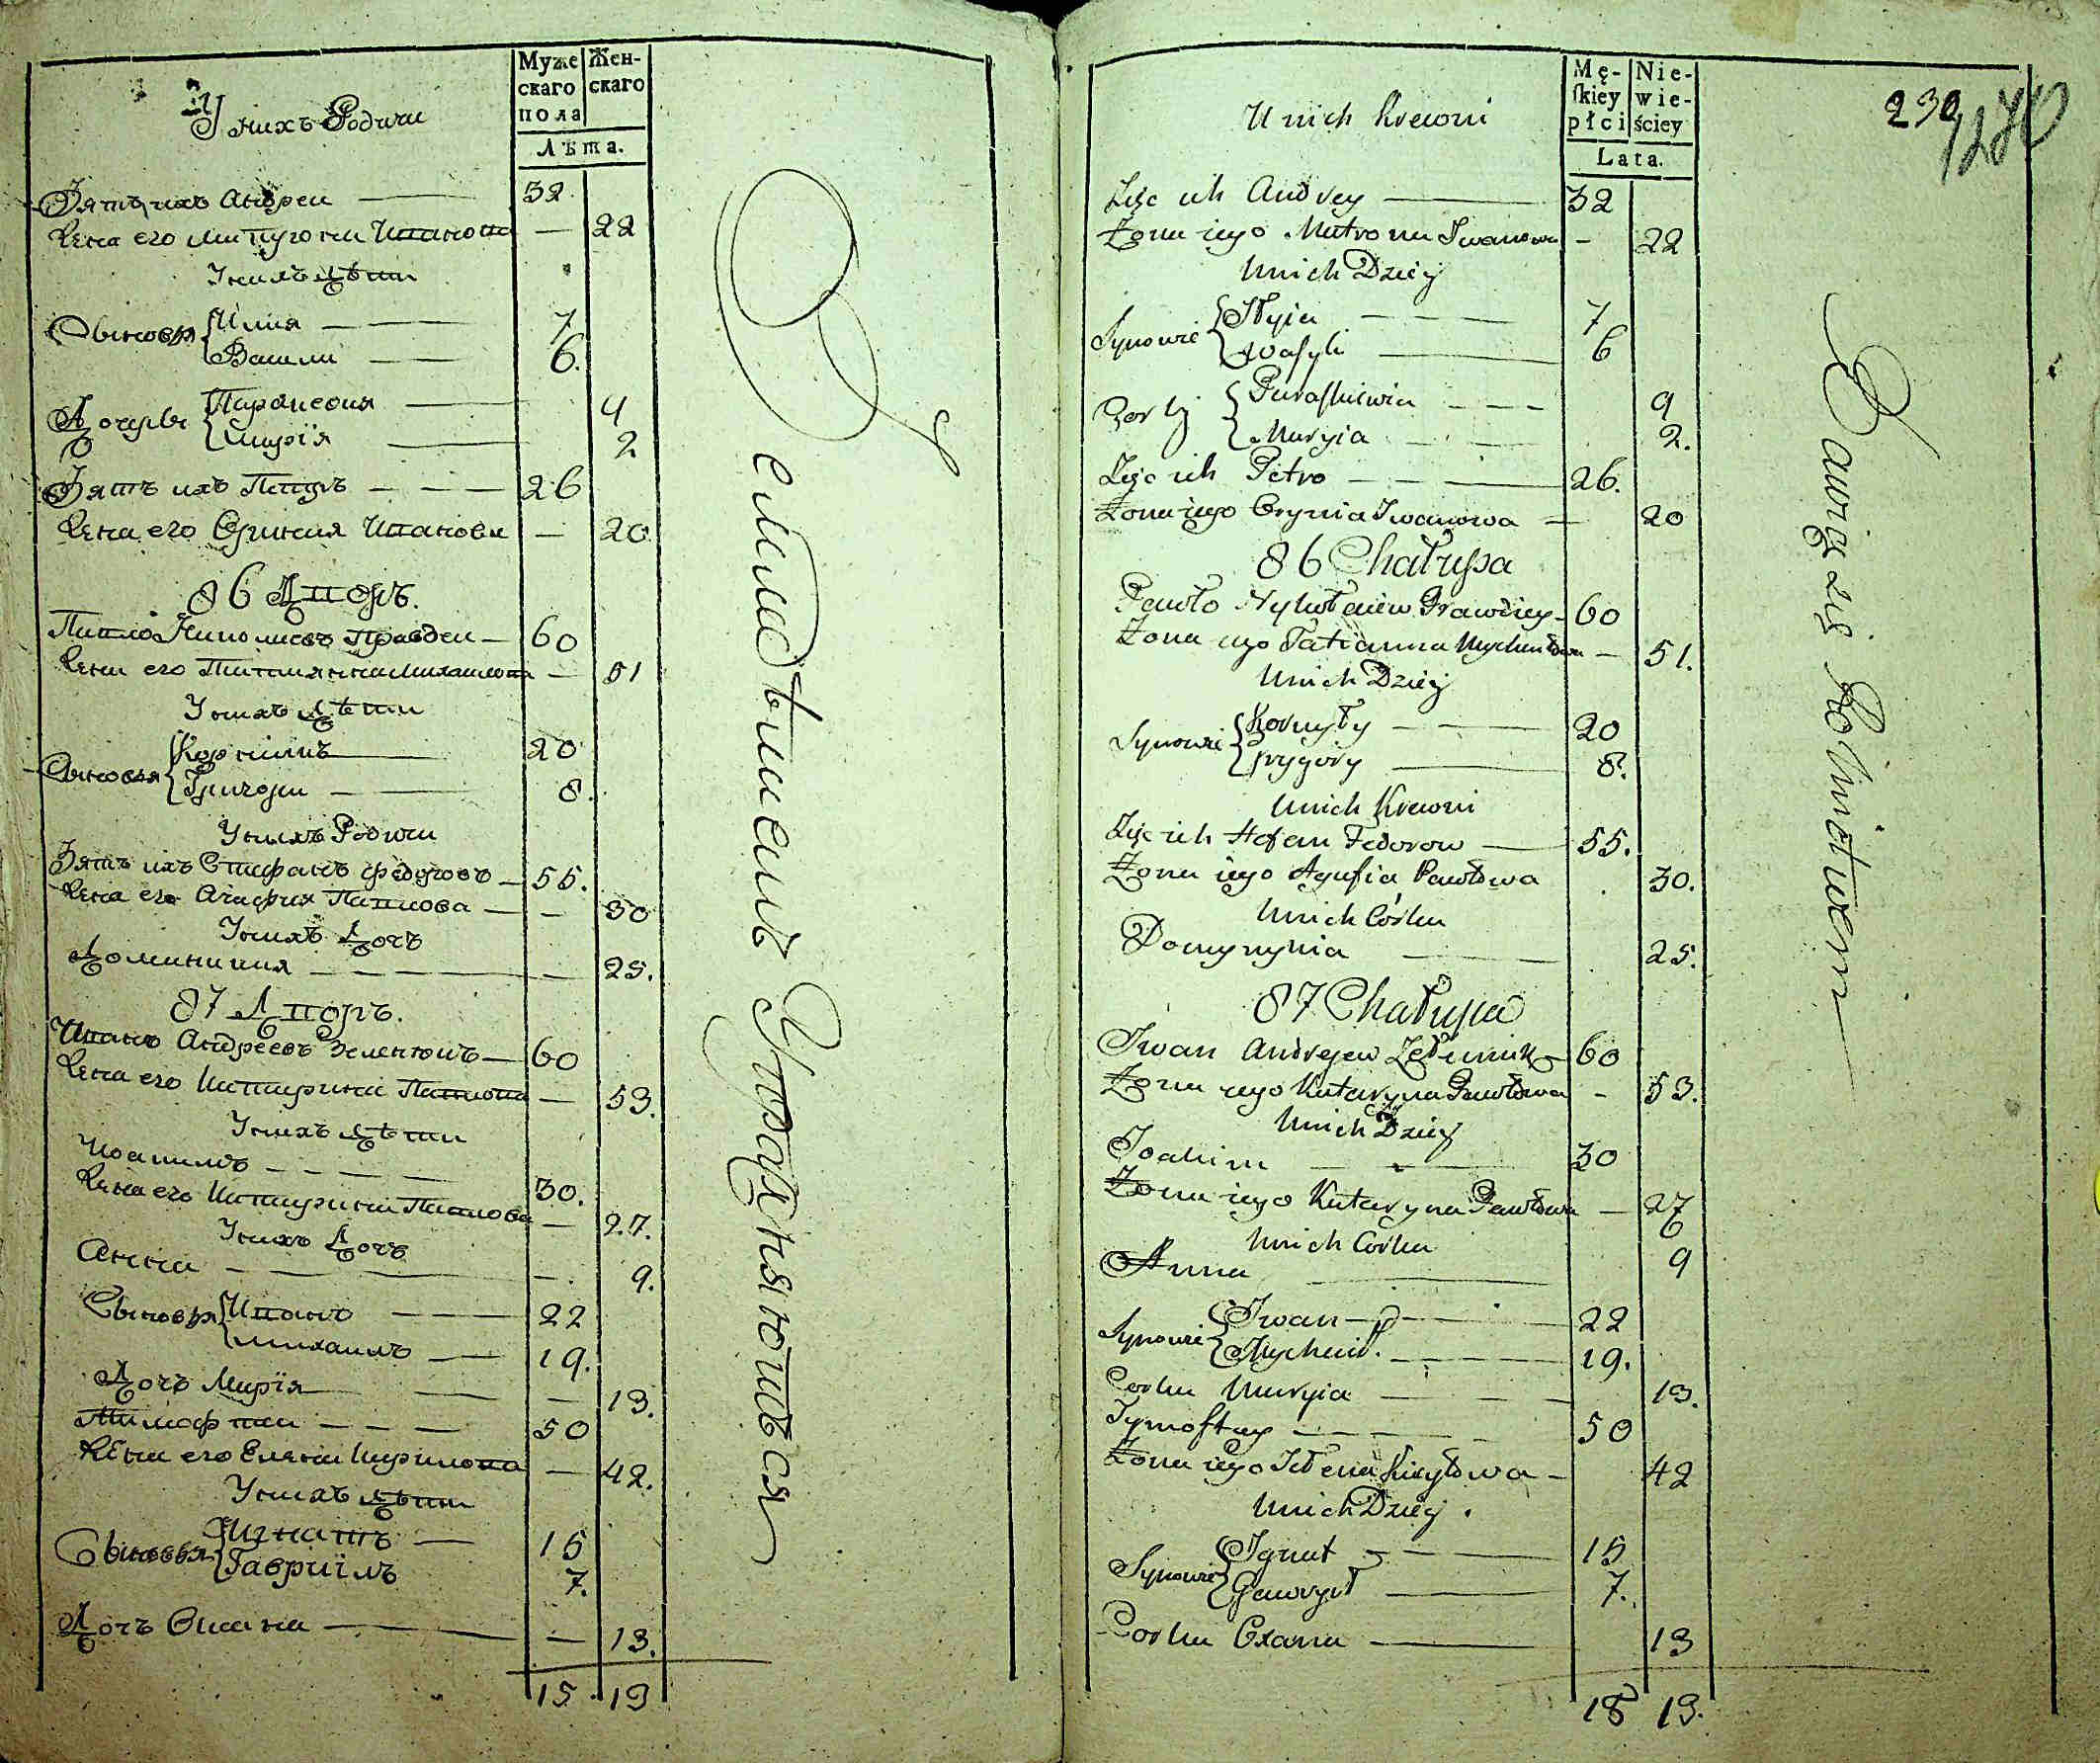 У нихъ Родичи
Муже
скаго
пола
Жен-
скаго
Лѣта.
Зять ихъ Андреи — 32
Жена его Матрона Иванова — 22
У нихъ Дѣти
Сыновья Илия — 7
Василм — 6.
Дочери Параскевия — 4
Марїя — 2
Зять ихъ Петръ — 26
Жена его Ориния Иванова — 20
86 Дворъ.
Павло Николаевъ Правдеи — 60
Жена его Татиянна Михаилова — 51
У нихъ Дѣти
Сыновья Корнилъ — 20
Григори — 8.
У нихъ Родичи
Зять ихъ Стефанъ Федоровъ — 55.
Жена его Агафия Павлова — 30
У нихъ Дочь
Доминикия — 25.
87 Дворъ.
Иванъ Андреевъ — 60
Жена его Катарина Павлова — 53.
У нихъ Дѣти
Иоакимъ — 30.
Жена его Катарина Павлова — 27.
У нихъ Дочь
Анна — 9.
Сыновья Иванъ — 22
Михаилъ — 19.
Дочь Марїя — 13.
Тимофтеи — 50
Жена его Елена Кирилова — 42.
У нихъ Дѣти
Сыновья Игнатъ — 15
Гаврїилъ — 7.
Дочь Оксана — 13.
15 . 13
Земледѣлиемъ Упражняются
U nich Krewni
Mę-
ſkiey
płci
Nie-
wie-
ściey
Lata.
230
1270
Zięc ich Andrey — 32
Żona iego Matrona Iwanowa — 22
U nich Dzieci
Synowie Ilyia — 7
Waſyli — 6
Corki Paraſkiewia — 9
Maryia — 2.
Zięc ich Petro — 26.
Żona iego Orynia Iwanowa — 20
86 Chałupa
Pawło Mykołaiew Prawdiey — 60
Żona iego Tatianna Mychaiłowa — 51.
U nich Dzieci
Synowie Kornyły — 20
Hrygory — 8.
U nich Krewni
Zięc ich Stefan Fedorow — 55.
Żona iego Agafia Pawłowa 30.
U nich Córka
Domynynia — 25.
87 Chałupa
Iwan Andrejew — 60
Żona iego Kataryna Pawłowa - 53.
U nich Dzieci
Joakim — 30
Żona iego Kataryna Pawłowa — 27
U nich Corka
Anna — 9
Synowie Iwan — 22
Mychaił. — 19.
Corka Maryia — 13.
Tymoftey — 50
Żona iego Jełena Kiryłowa — 42
U nich Dzieci .
Synowie Ignat — 15
Gawrył — 7.
Corka Oxana — 13
18 13.
Bawią się Rolnictwem